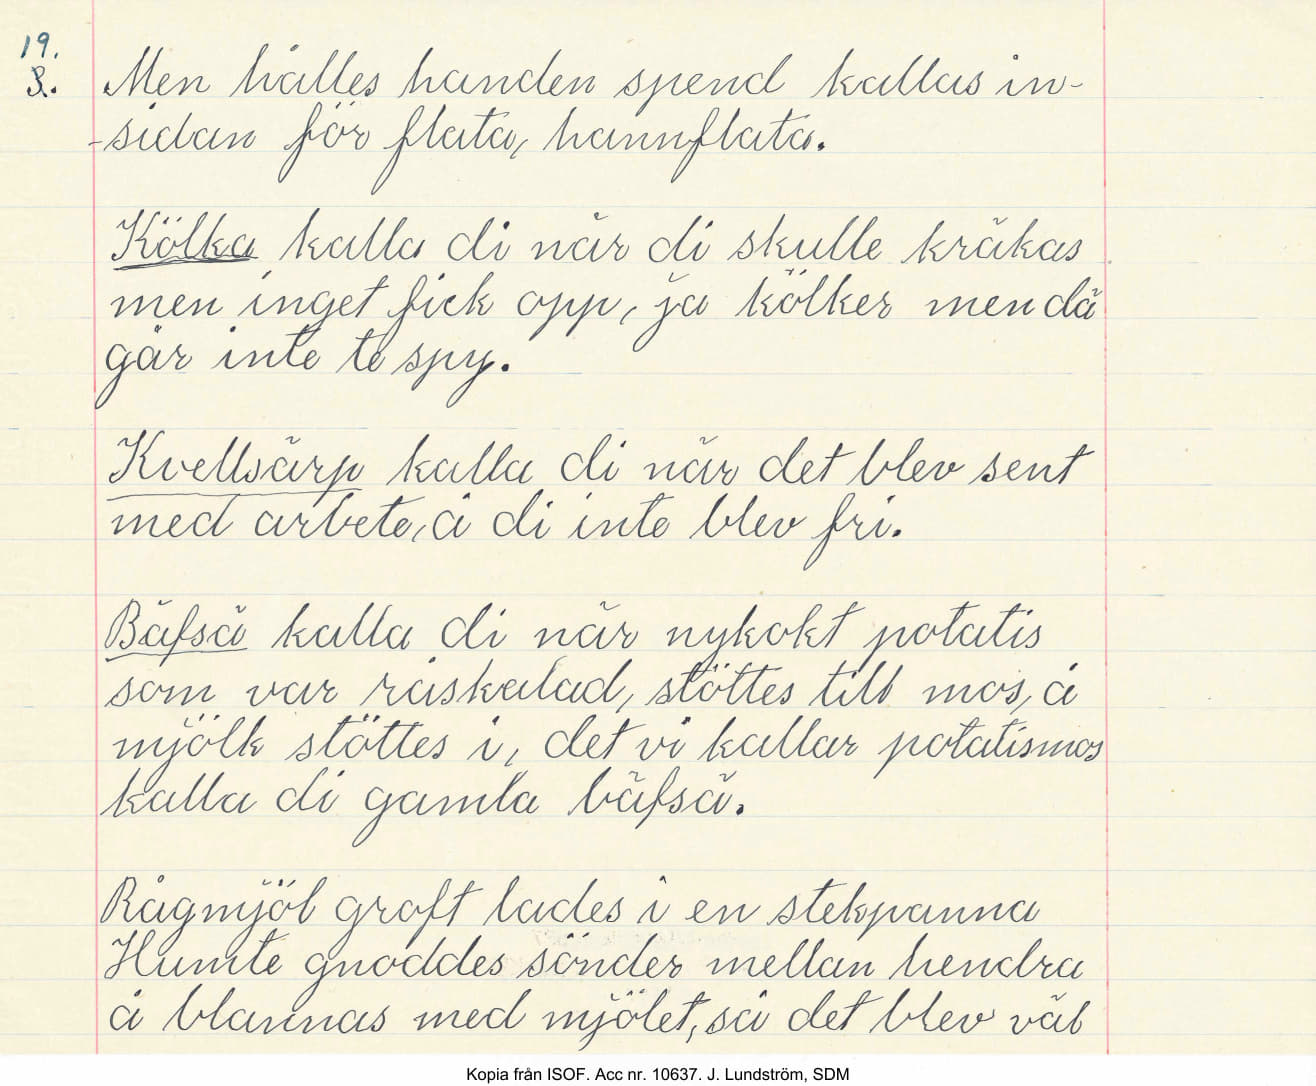 19.
3.
Men hålles handen spend kallas in-
-sidan för flata, hannflata.
Kölka kalla di når di skulle kräkas
men inget fick opp, ja kölker men dä
går inte te spy.
Kvellsärp kalla di när det blev sent
med arbete, å di inte blev fri.
Bäfsä kalla di när nykokt potatis
som var råskalad, stöttes till mos, å
mjölk stöttes i, det vi kallar potatismos
kalla di gamla bäfsä.
Rågmjöl groft lades i en stekpanna
Humle gnoddes sönder mellan hendra
å blannas med mjölet, så det blev väl
Kopia från ISOF. Acc nr. 10637. J. Lundström, SDM